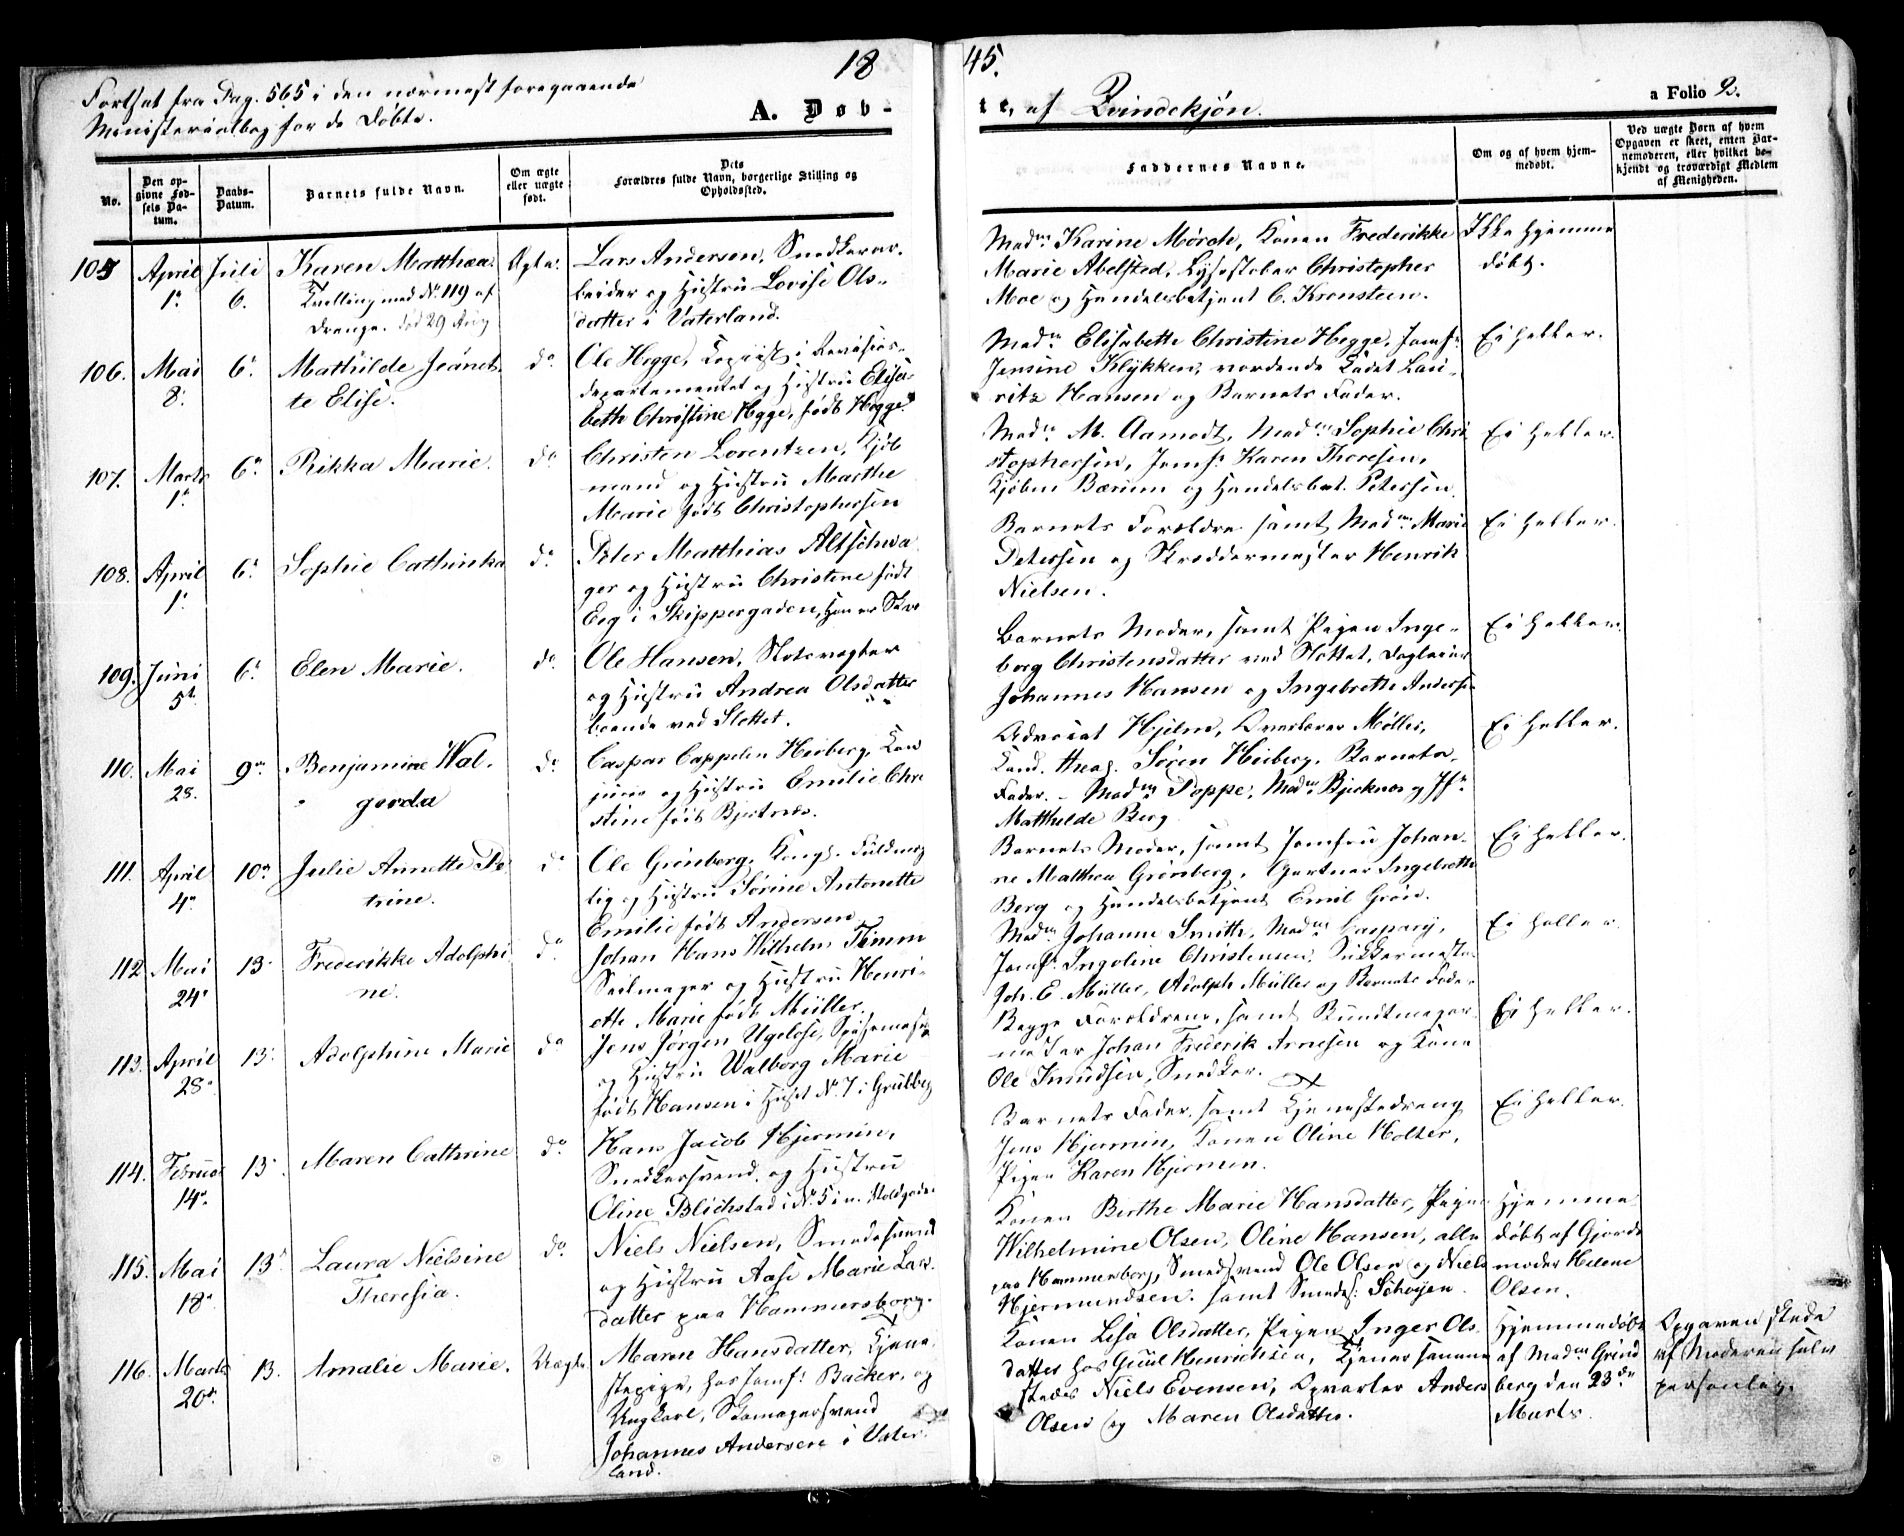 1845.
Fortsat fra Pag. 565 i den nærmest foregaaende
Ministerialbog for de Døbte.
A. Døbte, af Qvindekjøn.
a Folio 2.
No.
Den opgivne Fødsels Datum.
Daabs-Datum.
Barnets fulde Navn.
Om ægte eller uægte født.
Dets Forældres fulde Navn, borgerlige Stilling og Opholdssted.
Faddernes Navne.
Om og af hvem hjemmedøbt.
Ved uægte Børn af hvem Opgaven er skeet, enten Barnemoderen, eller hvilket bekjendt og troværdigt Medlem af Menigheden.
105 April 1. Juli 6. Karen Matthea.
Tvilling med No. 119 af
Drenge. død 29 Aug
Ægte.
Lars Andersen, Snedkerar-
beider og Hustru Lovise Ols-
datter i Vaterland.
Madm. Karine Mørch, Konen Frederikke
Marie Abelsted, Lysestøber Christopher
Moe og Handelsbetjent C. Kronsteen.
Ikke hjemme
døbt.
106. Mai 8. 6. Mathilde Jeanet-
te Elise.
do
Ole Hegge, Copiist i Revisions-
departementet og Hustru Elisa-
beth Christine Hegge, født Hegge.
Madm. Elisabette Christine Hegge, Jomf.
Jensine Klykken, vordende Cadet Lau-
ritz Hansen og Barnets Fader.
Ei heller.
107. Marts 1. 6. Rikka Marie.
do
Christen Lorentzen, Kjøb
mand og Hustru Marthe
Marie født Christophersen
Madm. M. Aamodt, Madm. Sophie Chri
stophersen, Jomf. Karen Thoresen,
Kjøbm Bærum og Handelsbet. Petersen.
Ei heller.
108. April 1. 6. Sophie Cathinka
do
Peter Matthias Altschwa
ger og Hustru Christine født
Eeg i Skippergaden,
Barnets Forældre samt Madm. Marie
Petersen og Skreddermester Henrik
Nielsen.
Ei heller.
109. Juni 5t. 6. Elen Marie.
do
Ole Hansen, Slotsvægter
og Hustru Andrea Olsdatter
boende ved Slottet.
Barnets Moder, samt Pigen Inge-
borg Christensdatter ved Slottet, Dagleier
Johannes Hansen og Ingebrette Anderse
Ei heller.
110. Mai 28. 9. Benjamine Wal-
gerda
do
Caspar Cappelen Heiberg,
og Hustru Emilie Chri
stine født Bjerknes.
Advocat Hjelm, Overlærer Møller,
Cand. theol. Søren Heiberg, Barnets
Fader. - Madm. Poppe, Madm. Bjerknes og Jf.
Matthilde Berg.
Ei heller.
111. April 4. 10. Julie Annette Pe-
trine.
do
Ole Grønberg, Kongs. Fuldmæg
tig og Hustru Sørine Antonette
Emilie født Andersen
Barnets Moder, samt Jomfru Johan-
ne Matthea Grønberg, Gartner Ingebrette
Berg og Handelsbetjent Emil Grøn.
Ei heller.
112 Mai 24. 13. Frederikke Adolphi
ne.
do
Johan Hans Wilhelm Timm
Seilmager og Hustru Henri-
ette Marie født Müller.
Madm. Johanne Smith, Madm. Caspary,
Jomf. Ingoline Christensen,
Joh. E. Müller, Adolph Müller og Barnets Fader.
Ei heller.
113. April 28. 13. Adolphine Marie
do
Jens Jørgen Ugelose,
og Hustru Walborg Marie
født Hansen i Huset No. 7 i Grubbeg
Begge Forældrene, samt Bundtmager-
mester Johan Frederik Arnesen og Kone
Ole Knudsen, Snedker.
Ei heller.
114. Februar 14. 13. Maren Cathrine
do
Hans Jacob Hjermin,
Snedkersvend, og Hustru
Oline Blichstad i No. 5 i n. Voldgade.
Barnets Fader, samt Tjenestedreng
Jens Hjermin, Konen Oline Holter,
Pigen Karen Hjermin.
Ei heller.
115. Mai 18. 13. Laura Nielsine
Theresia.
do
Niels Nielsen, Smedesvend
og Hustru Aase Marie Lars-
datter paa Hammersborg.
Konen Birthe Marie Hansdatter, Pigen
Wilhelmine Olsen, Oline Hansen, alle
paa Hammersborg, Smedsvend Ole Olsen og Niels
Hjermundsen. samt Smedes. Schøyen.
Hjemme
døbt af Gjorde
moder Helene
Olsen.
116. Marts 20de. 13. Amalie Marie.
Uægte
Maren Hansdatter, Tjene-
stepige, hos Jomf: Backer, og
Ungkarl, Skomagersvend
Johannes Andersen i Vater-
land.
Konen Lisa Olsdatter, Pigen Inger Ols-
datter hos Guul Henrichsen, Tjener samme
steds Niels Evensen, Opvarter Anders
Olsen og Maren Olsdatter.
Hjemmedøbt
af Madm. Grind
berg den 23de
Marts.
Opgaven skede
af Moderen selv
personlig.